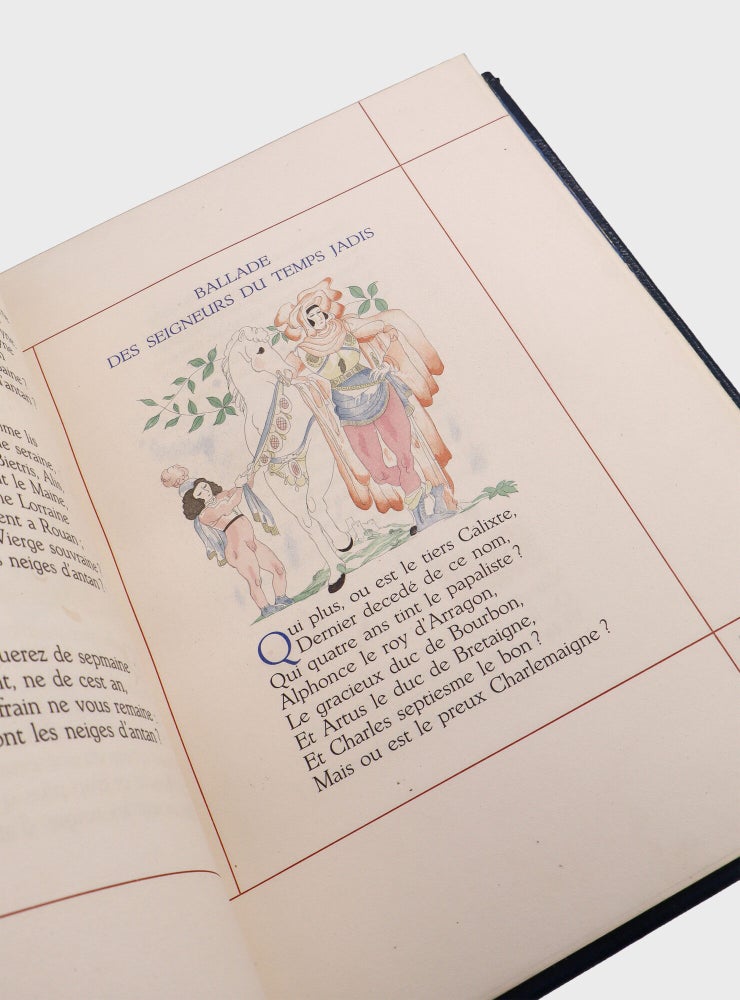 me lis
seraine,
Bietris, Alis,
t le Maine,
ne Lorraine
ent a Rouan;
Vierge souvraine?
neiges d'antan?
uerez de sepmaine
nt, ne de cest an,
frain ne vous remaine:
ont les neiges d'antan?
BALLADE
DES SEIGNEURS DU TEMPS JADIS
Qui plus, ou est le tiers Calixte,
Dernier decedé de ce nom,
Qui quatre ans tint le papaliste?
Alphonce le roy d'Arragon,
Le gracieux duc de Bourbon,
Et Artus le duc de Bretaigne,
Et Charles septiesme le bon?
Mais ou est le preux Charlemaigne?